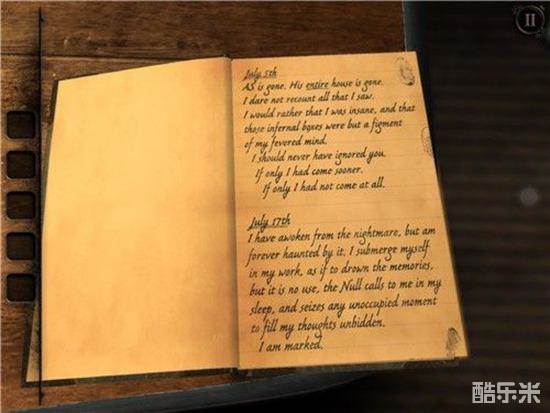 July 5th
AS is gone. His entire house is gone.
I dare not recount all that I saw.
I would rather that I was insane, and that
those infernal boxes were but a figment
of my fevered mind.
I should never have ignored you.
If only I had come sooner.
If only I had not come at all.
July 17th
I have awoken from the nightmare, but am
forever haunted by it. I submerge myself
in my work, as if to drown the memories,
but it is no use, the Null calls to me in my
sleep, and seizes any unoccupied moment
to fill my thoughts unbidden.
I am marked.
酷乐米